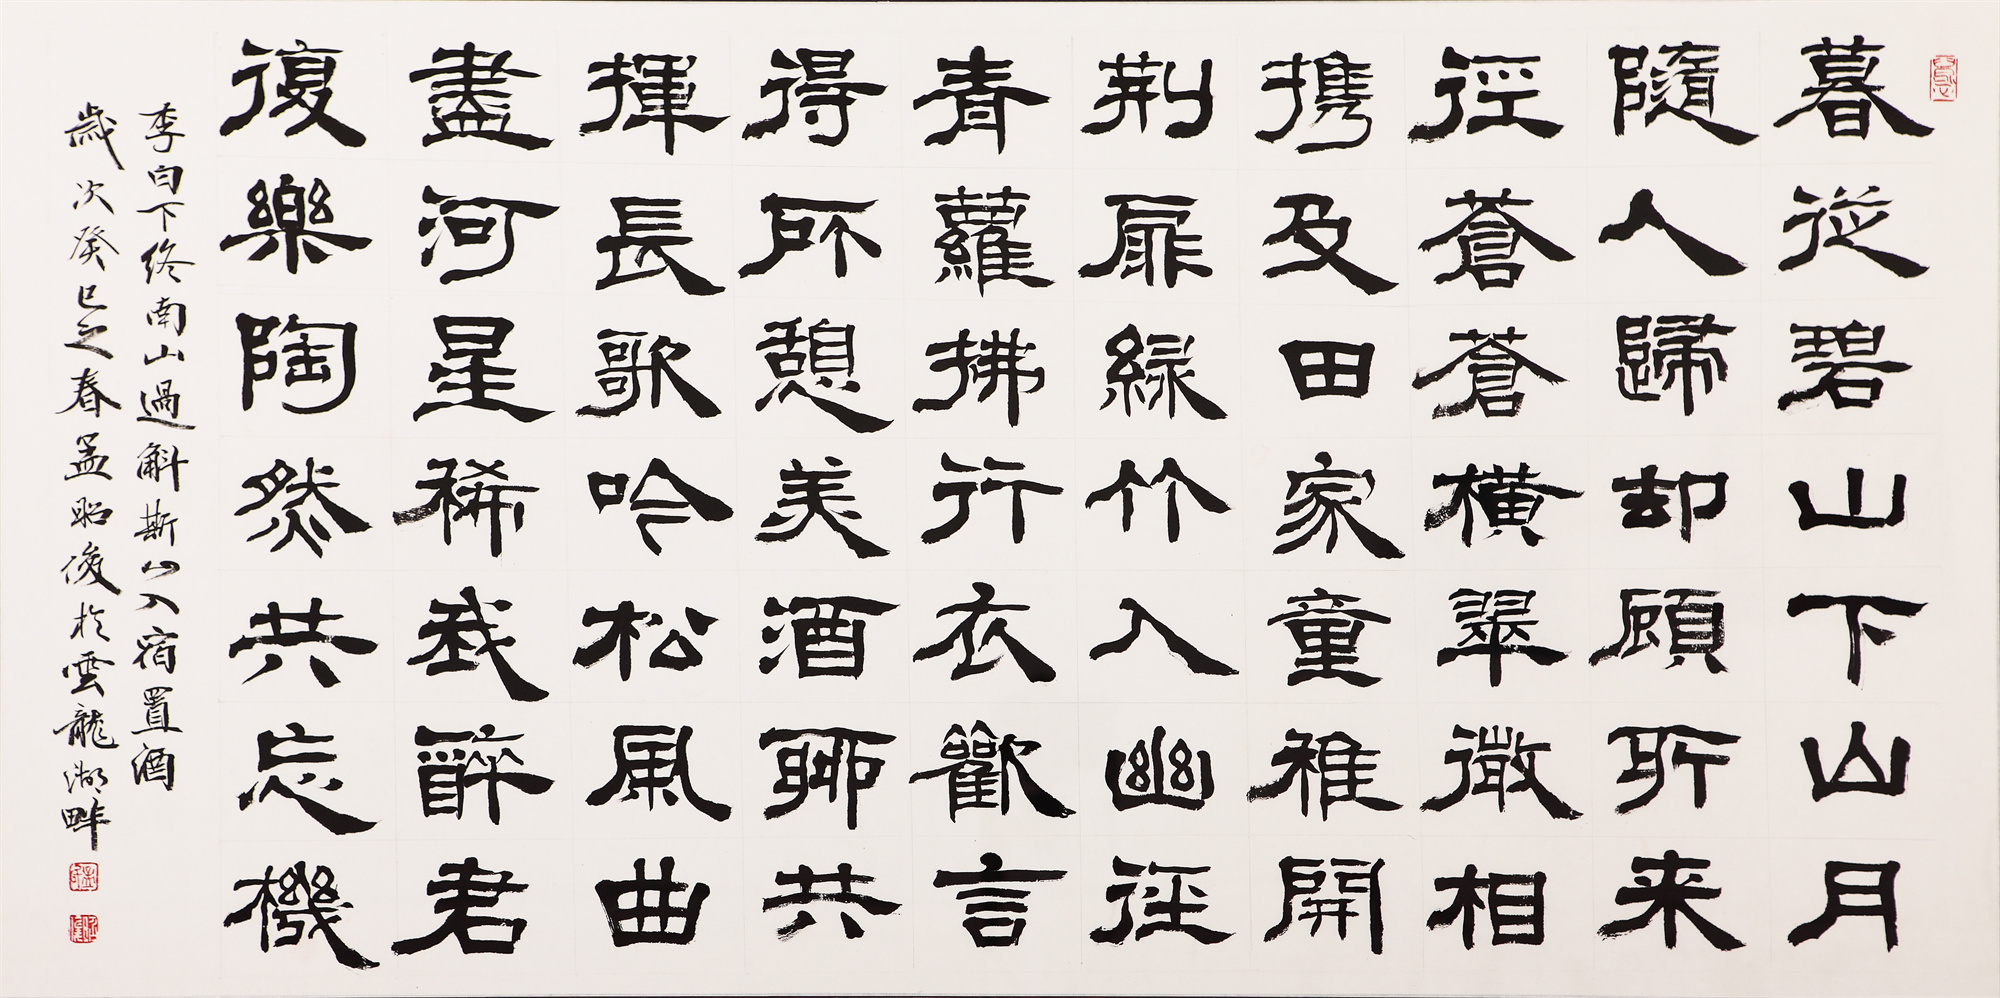 暮從碧山下山月
隨人歸却顧所来
徑蒼蒼橫翠微相
携及田家童稚開
荆扉綠竹入幽徑
青蘿拂行衣歡言
得所憩美酒聊共
揮長歌吟松風曲
盡河星稀我醉君
復樂陶然共忘機
李白下终南山過斛斯山人宿置酒
歲次癸巳之春孟昭俊於雲龍湖畔